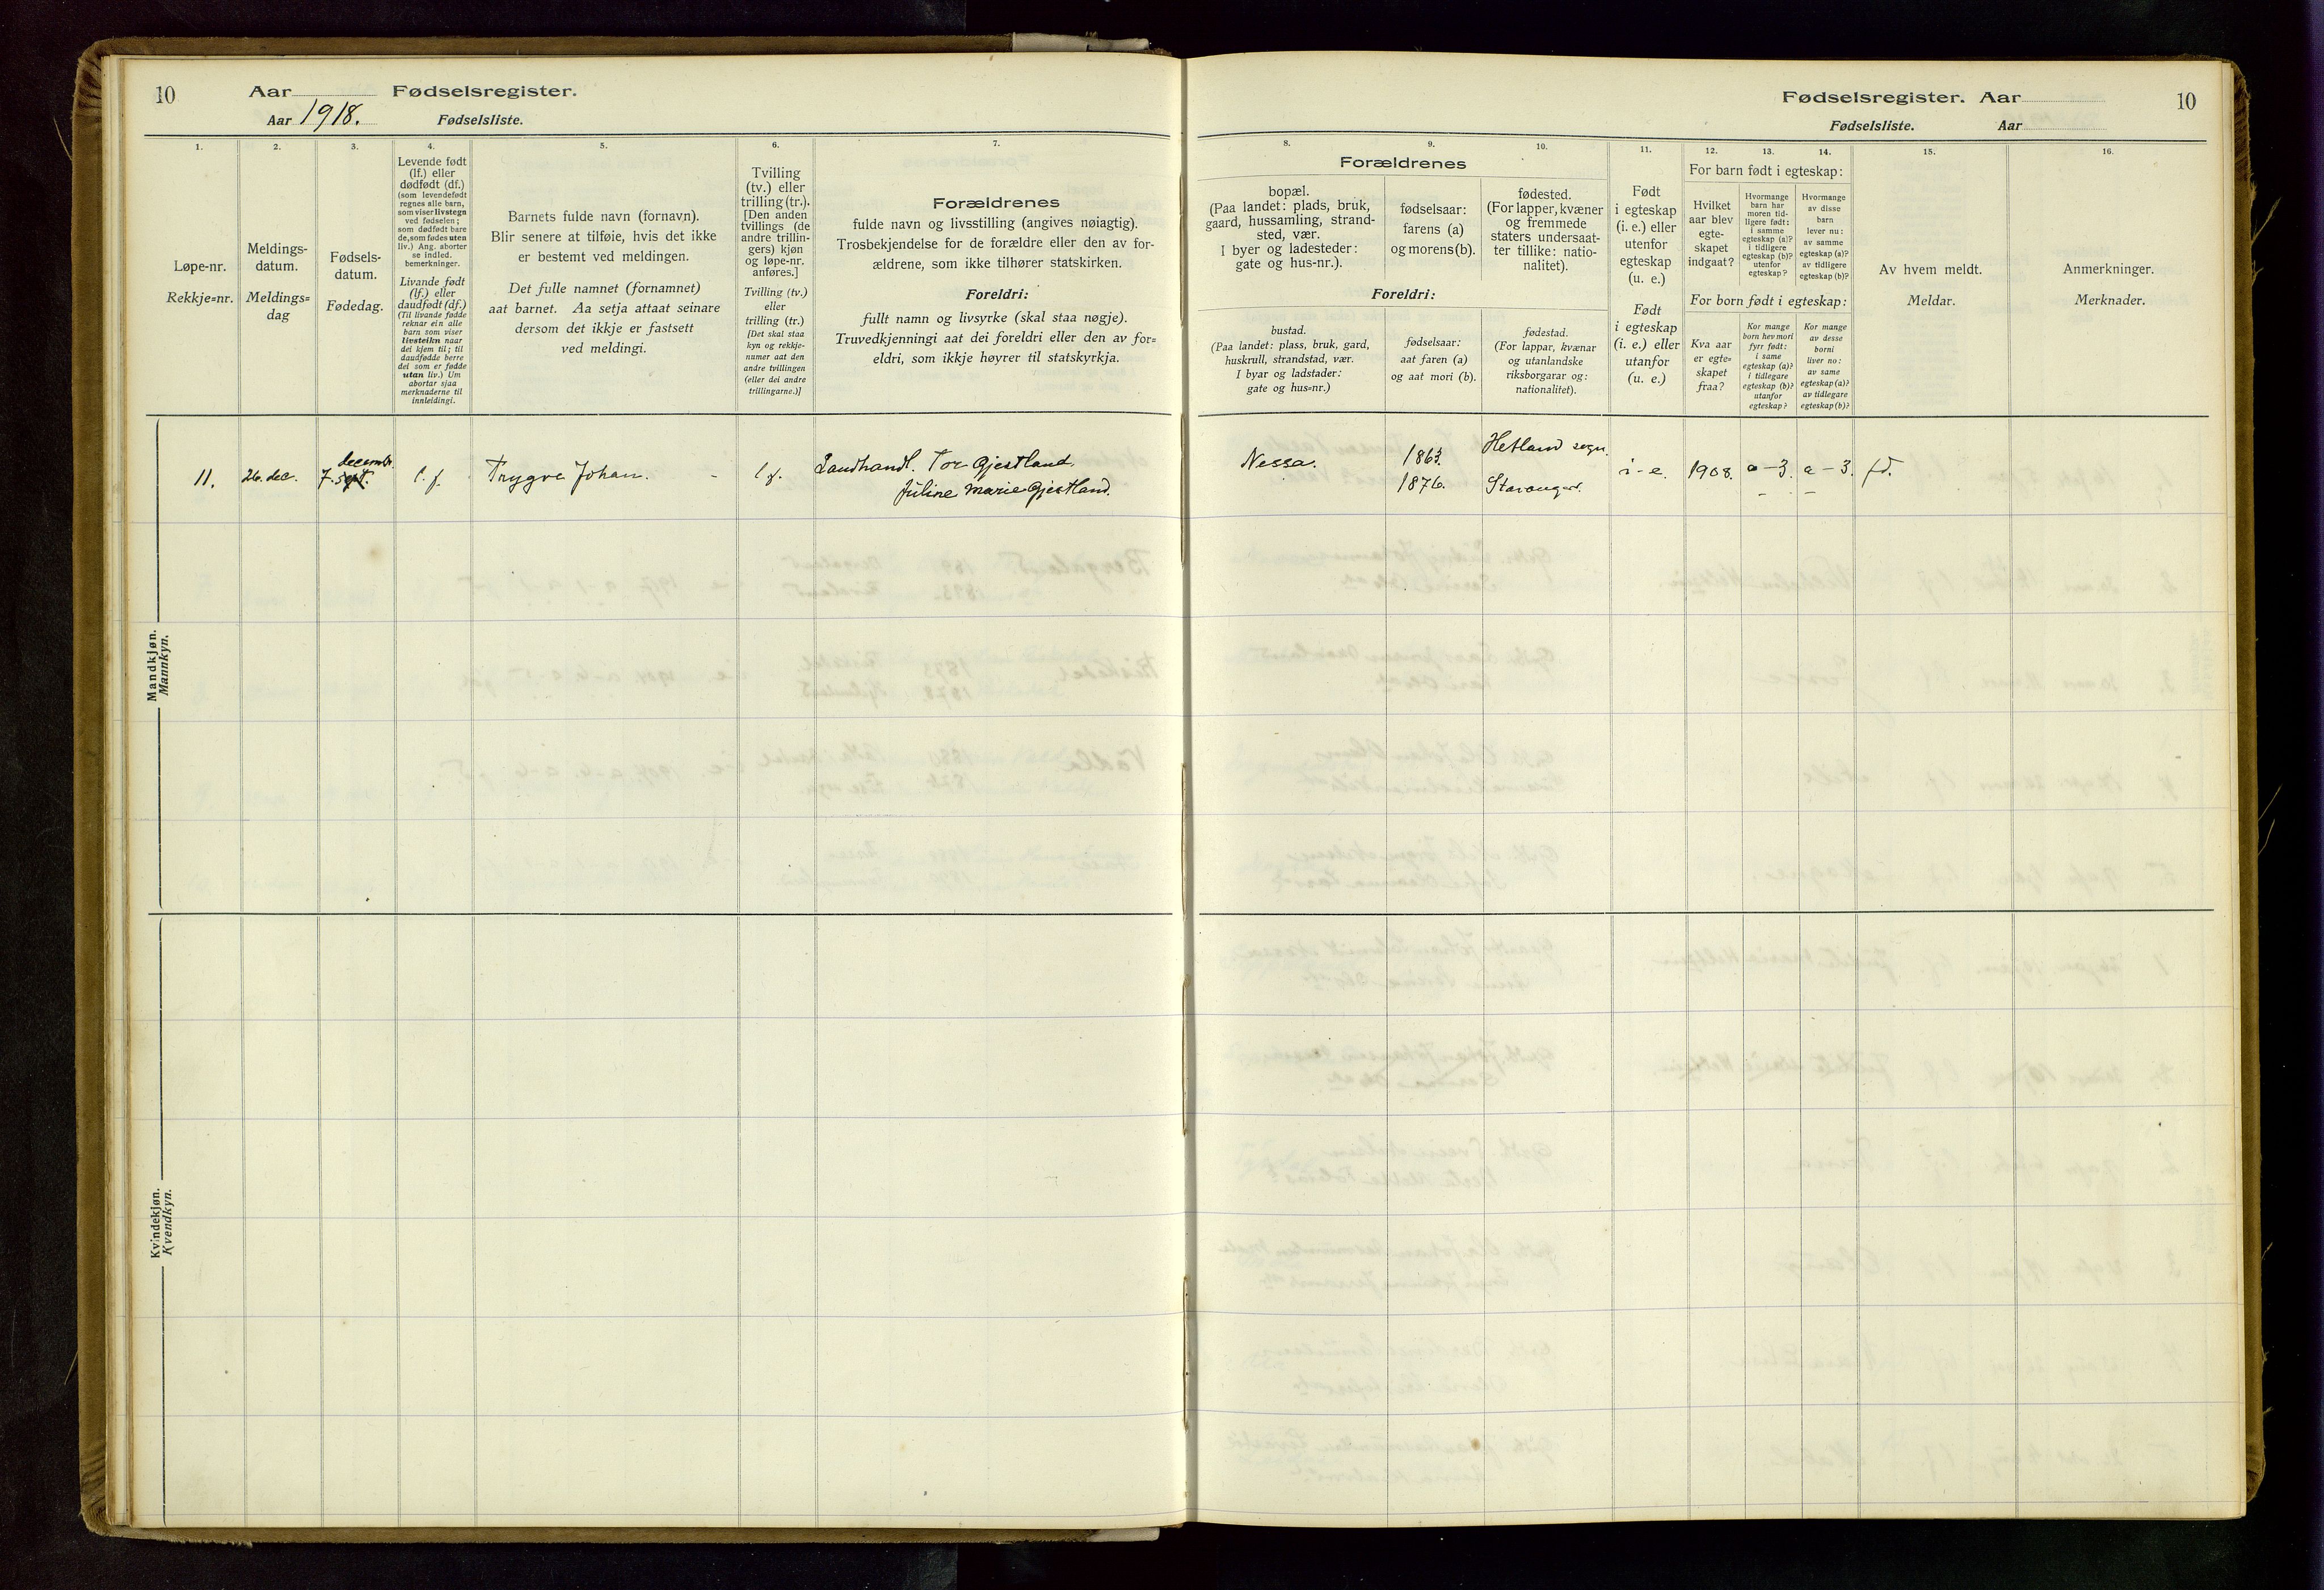 10
Aar
Fødselsregister.
Aar 1918.
Fødselsliste.
Fødselsregister. Aar
10
Fødselsliste.
Aar
1.
Løpe-nr.
Rekkje=nr.
2.
Meldings-
datum.
Meldings=
dag
3.
Fødsels-
datum.
Fødedag.
4.
Levende født
(lf.) eller
dødfødt (df.)
(som levendefødt
regnes alle barn,
som viser livstegn
ved fødselen;
som dødfødt bare
de, som fødes uten
liv.) Ang. aborter
se indled.
bemerkninger.
Livande født
(lf.) eller
daudfødt (df.)
(Til livande fødde
reknar ein alle
barn som viser
livsteikn naar
dei kjem til; til
daudfødde berre
dei som er fødde
utan liv.) Um
abortar sjaa
merknaderne til
innleidingi.
5.
Barnets fulde navn (fornavn).
Blir senere at tilføie, hvis det ikke
er bestemt ved meldingen.
Det fulle namnet (fornamnet)
aat barnet. Aa setja attaat seinare
dersom det ikkje er fastsett
ved meldingi.
6.
Tvilling
(tv.) eller
trilling (tr.).
[Den anden
tvillings (de
andre trillin-
gers) kjøn
og løpe-nr.
anføres.]
Tvilling (tv.)
eller
trilling (tr.)
[Det skal staa
kyn og rekkje-
numer aat den
andre tvillingen
(eller dei andre
trillingarne.)]
7.
Forældrenes
fulde navn og livsstilling (angives nøiagtig).
Trosbekjendelse for de forældre eller den av for-
ældrene, som ikke tilhører statskirken.
Foreldri:
fullt namn og livsyrke (skal staa nøgje).
Truvedkjenningi aat dei foreldri eller den av for=
eldri, som ikkje høyrer til statskyrkja.
8.
9.
10.
Forældrenes
bopæl.
(Paa landet: plads, bruk,
gaard, hussamling, strand-
sted, vær.
I byer og ladesteder:
gate og hus-nr.).
fødselsaar:
farens (a)
og morens (b).
fødested.
(For lapper, kvæner
og fremmede
staters undersaat-
ter tillike: natio-
nalitet).
Foreldri:
bustad.
(Paa landet: plass, bruk, gard,
huskrull, strandstad, vær.
I byar og ladstader:
gate og hus=nr.)
fødselsaar:
aat faren (a)
og aat mori (b).
fødestad.
(For lappar, kvænar
og utanlandske
riksborgarar og:
nationalitet).
11.
Født
i egteskap
(i. e.) eller
utenfor
egteskap
(u. e.)
Født
i egteskap
(i. e.) eller
utanfor
(u. e.)
12.
13.
14.
For barn født i egteskap:
Hvilket
aar blev
egte-
skapet
indgaat?
Hvormange
barn har
moren tid-
ligere født:
i samme
egteskap (a)?
i tidligere
egteskap (b)?
utenfor
egteskap?
Hvormange
av disse
barn
lever nu:
av samme
egteskap (a)?
av tidligere
egteskap (b)?
For born født i egteskap:
Kva aar
er egte=
skapet
fraa?
Kor mange
born hev mori
fyrr født:
i same
egteskap (a)?
i tidlegare
egteskap (b)?
utanfor
egteskap?
Kor mange
av desse
borni
liver no:
av same
egteskap (a)?
av tidlegare
egteskap (b)?
15.
Av hvem meldt.
Meldar.
16.
Anmerkninger.
Merknader.
Mandkjøn.
Mannkyn.
11.
26. dec.
decembr.
7. sept.
l. f.
Trygve Johan.
-
l. f.
Landhandl. Tor Gjestland.
Juline Marie Gjestland.
Nessa.
1863.
1876.
Hetland sogn.
Stavanger.
i - e.
1908.
a - 3.
a - 3.
fd.
Kvindekjøn.
Kvendkyn.